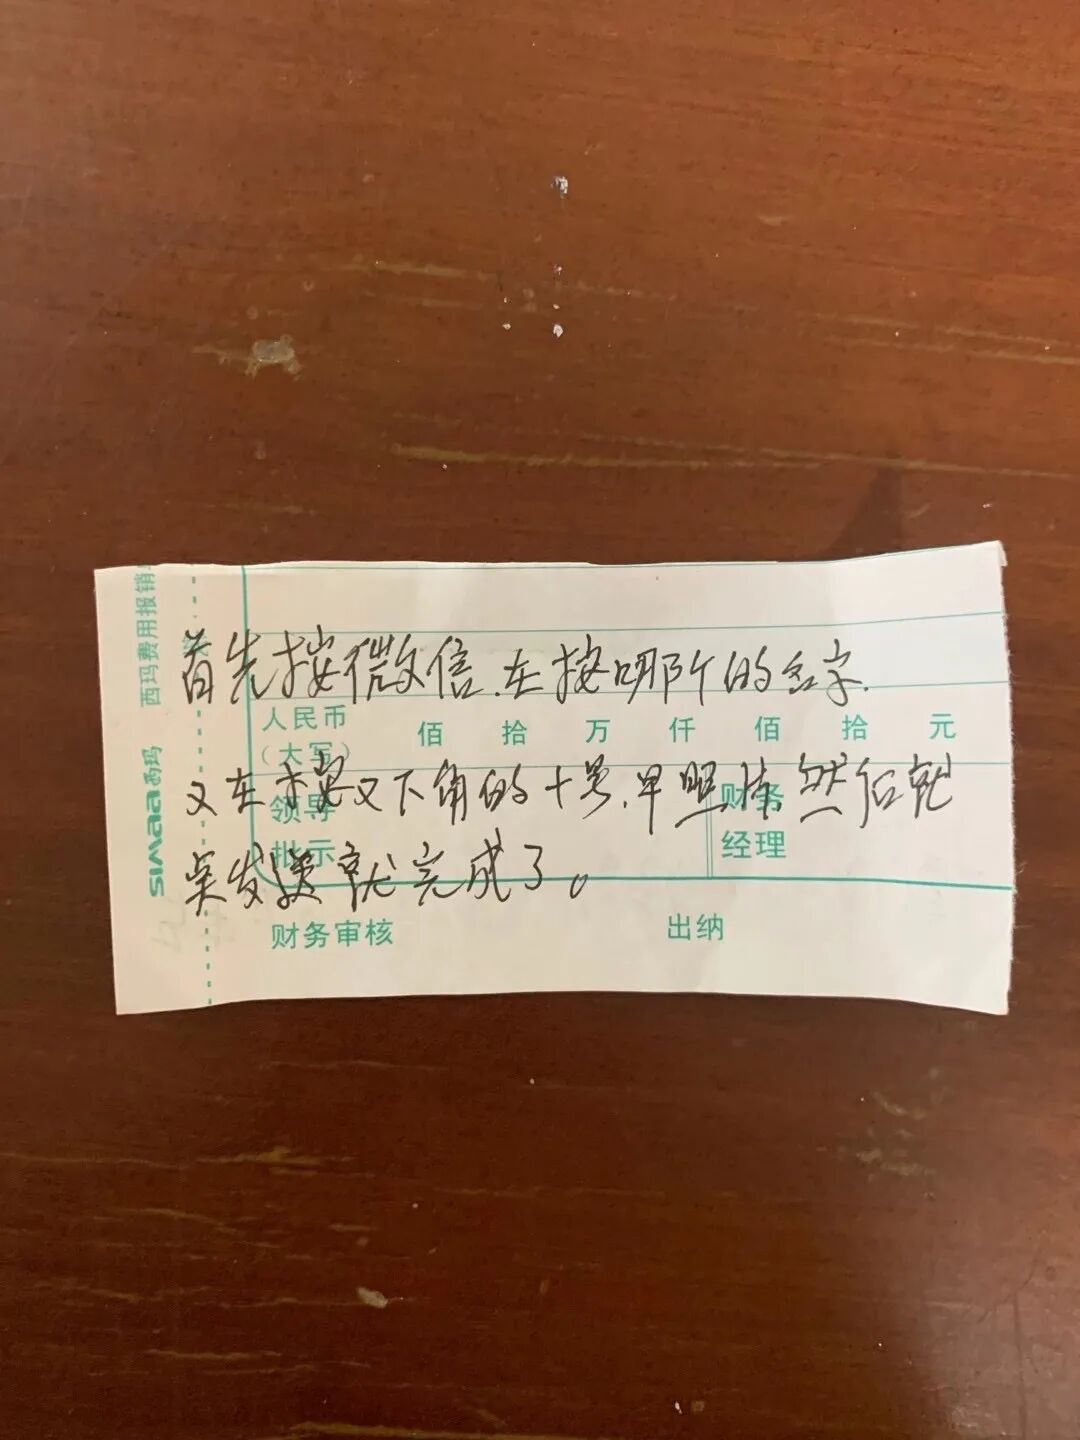 西玛费用报销
SIMAA西玛
首先按微信.在按哪个的名字.
人民币
(大写)
佰 拾 万 仟 佰 拾 元
又在按又下角的十号.早照 然后就
领导
批示
财务
经理
发 就完成了。
财务审核
出纳